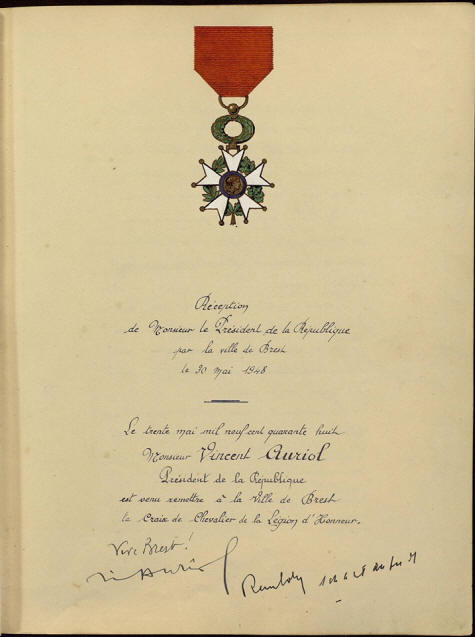 Réception
de Monsieur le Président de la République
par la ville de Brest
le 30 Mai 1948
Le trente mai mil neuf cent quarante huit
Monsieur Vincent Auriol
Président de la République
est venu remettre à la Ville de Brest
la Croix de Chevalier de la Légion d'Honneur.
Vive Brest !
V. Auriol